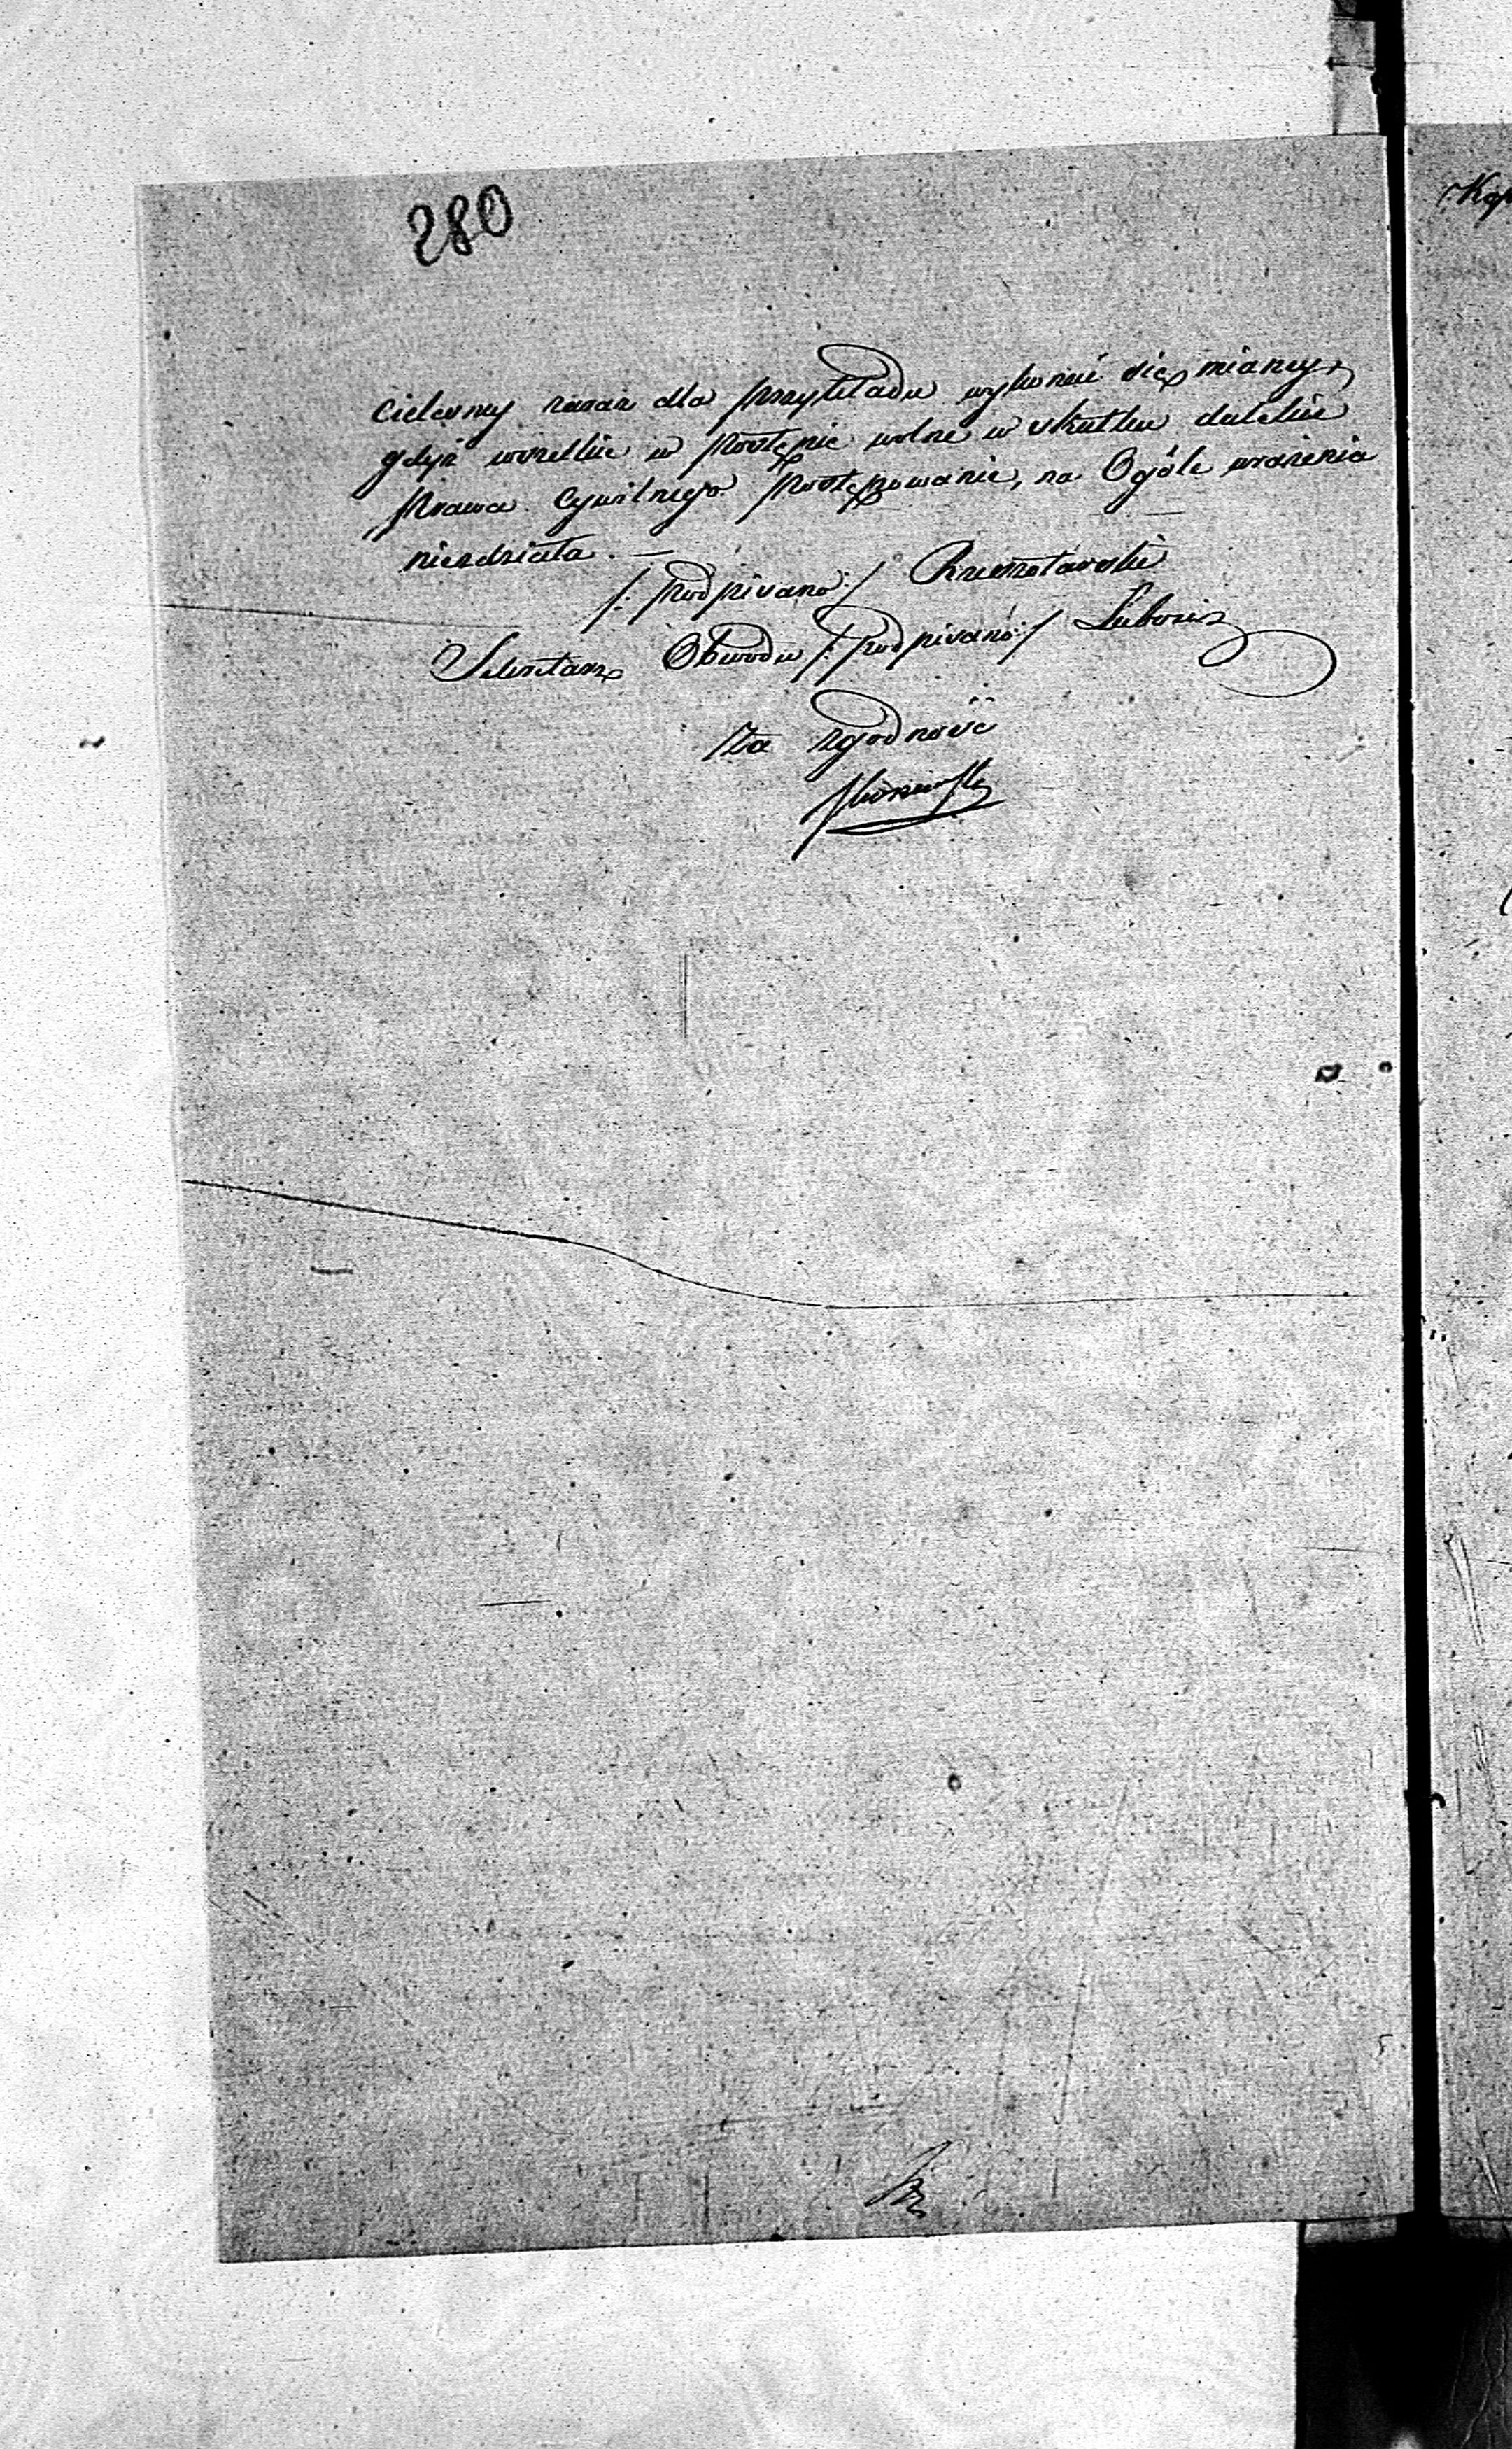 280
cielesney zaraz dla przykładu wykonać się mianey,
gdyż wszelkie w postępie wolne w skutku dalekie
prawa cywilnego postępowanie, na Ogóle wrażenia
niezdziała. —
/: podpisano :/ Rzeszotarski
Sekretarz Obwodu /: podpisano :/
Za zgodność